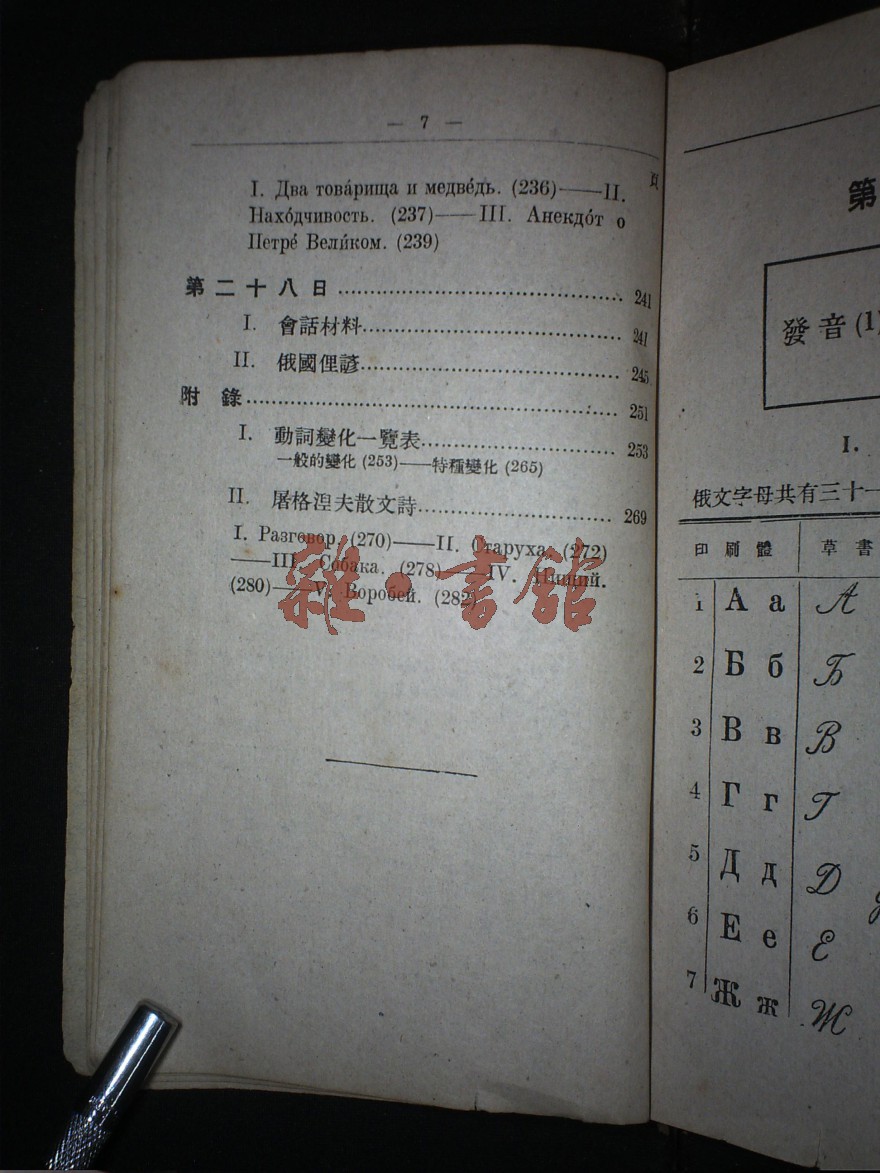 — 7 —
頁
I. Два това́рища и медве́дь. (236)——II.
Нахо́дчивость. (237)——III. Анекдо́т о
Петре́ Вели́ком. (239)
第二十八日 241
I. 會話材料 241
II. 俄國俚諺 245
附錄 251
I. 動詞變化一覽表 253
一般的變化 (253)——特種變化 (265)
II. 屠格涅夫散文詩 269
I. Разговор. (270)——II. Старуха. (272)
——III. Собака. (278)——IV. Нищий.
(280)——V. Воробей. (282)
雜·書館
第
發音 (1)
I.
俄文字母共有三十一
印刷體 草書
1 А а А
2 Б б Б
3 В в В
4 Г г Г
5 Д д Д
6 Е е Е
7 Ж ж Ж